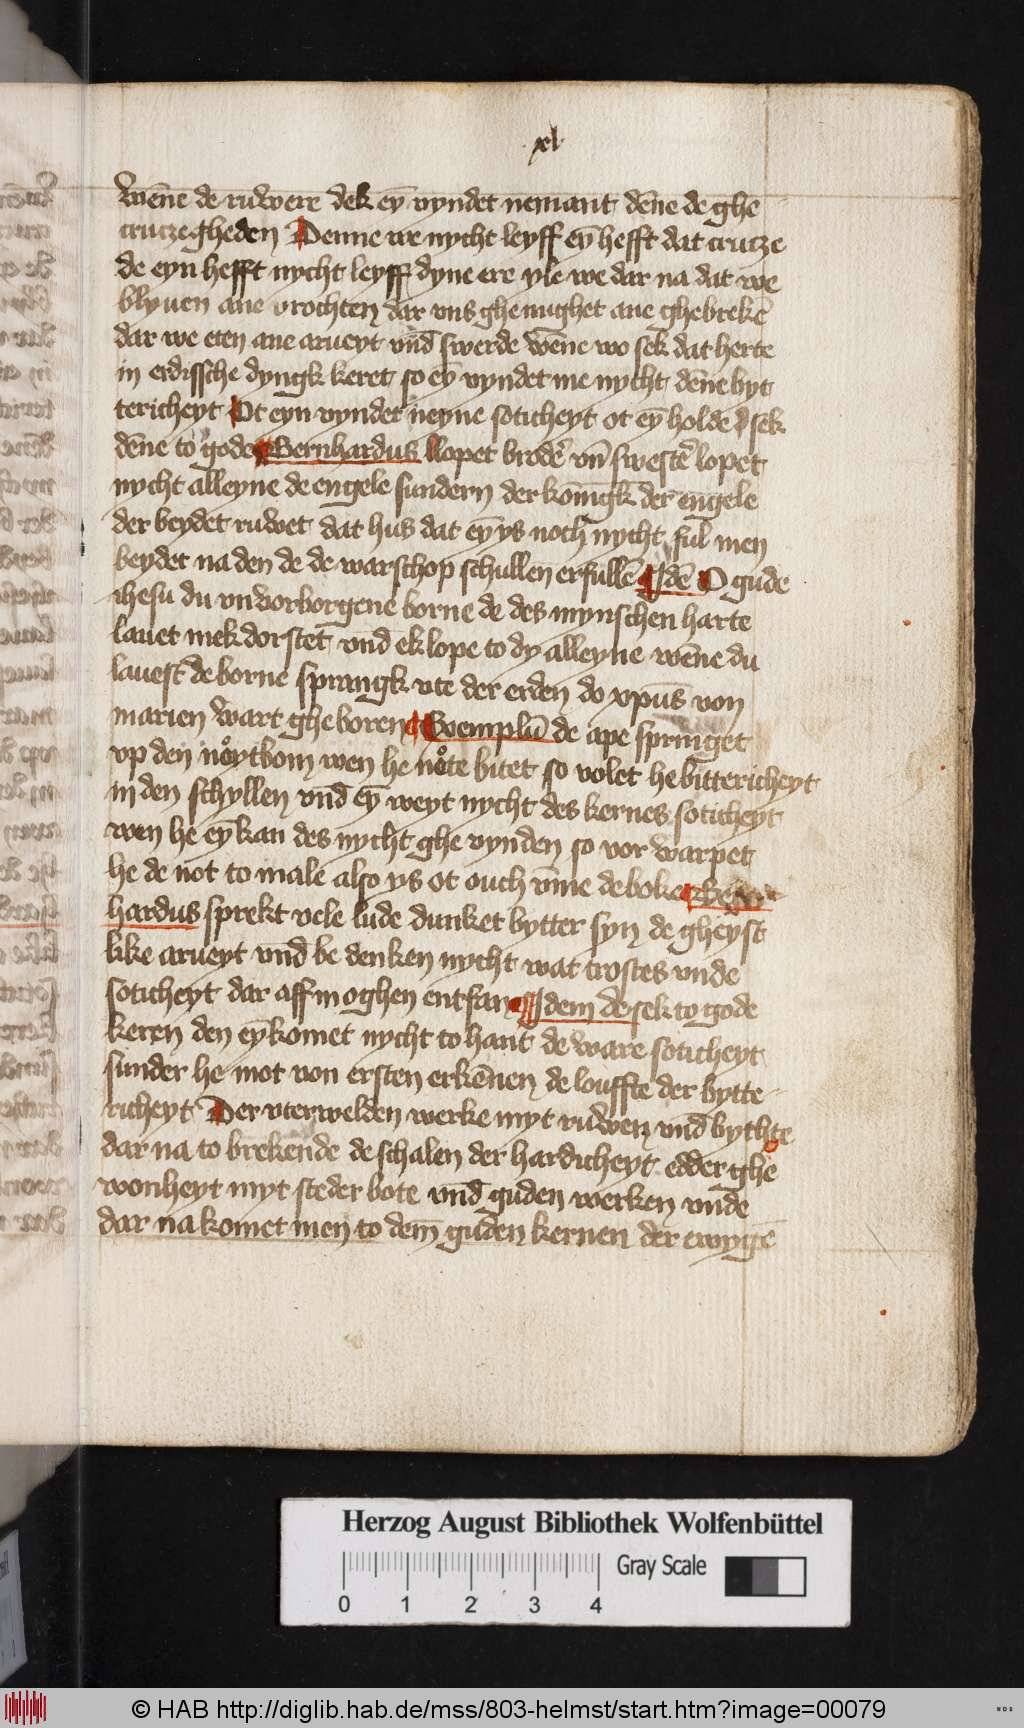 xl
Wēne de ruwere dek eȳ vyndet nemant dēne de ghe
crutzegheden Denne we nycht leyff eȳ hefft dat crutze
de eyn hefft nycht leyff dyne ere yle we dar na dat we
blyuen ane vrochten dar vns ghenughet ane ghebrekē
dar we eten ane arueyt vn̄d swerde wēne wo sek dat herte
in erdissche dyngk keret so eȳ vyndet me nycht dēne byt
tericheyt Ot eyn vyndet neyne soticheyt ot eȳ holde sek
dēne to gode Bernhardus llopet brodē vn̄ swestē lopet
nycht alleyne de engele sundern der konīgk der engele
der beydet ruwet dat hus dat eȳ ys noch nycht ful men
beydet na den de de warschop schullen erfullē Idē O gude
ihesu du vnvorborgene borne de des mynschen harte
lauet mek dorstet vnd ek lope to dy alleyne wēne du
lauest de borne sprangk vte der erden do xpūs von
marien wart gheboren Exemplū de ape springet
vp den noytbom wen he note bitet so volet he bittericheyt
in den schyllen vnd eȳ weyt nycht des kernes soticheyt
wen he eȳ kan des nycht ghe vynden so vor warpet
he de not to male also ys ot ouch vmme de boke Bern
hardus sprekt vele lude dunket bytter syn de gheyst
like arueyt vnd be denken nycht wat trostes vnde
soticheyt dar aff moghen entfan Idem de sek to gode
keren den eȳ komet nycht to hant de ware soticheyt
sunder he mot von ersten erkēnen de louffte der bytte-
richeyt Der vterwelden werke myt ruwen vnd bychte
dar na to brekende de schalen der hardicheyt edder ghe
wonheyt myt steder bote vnd guden werken vnde
dar na komet men to dem guden kernen der ewygē
Herzog August Bibliothek Wolfenbüttel
Gray Scale
0 1 2 3 4
© HAB http://diglib.hab.de/mss/803-helmst/start.htm?image=00079